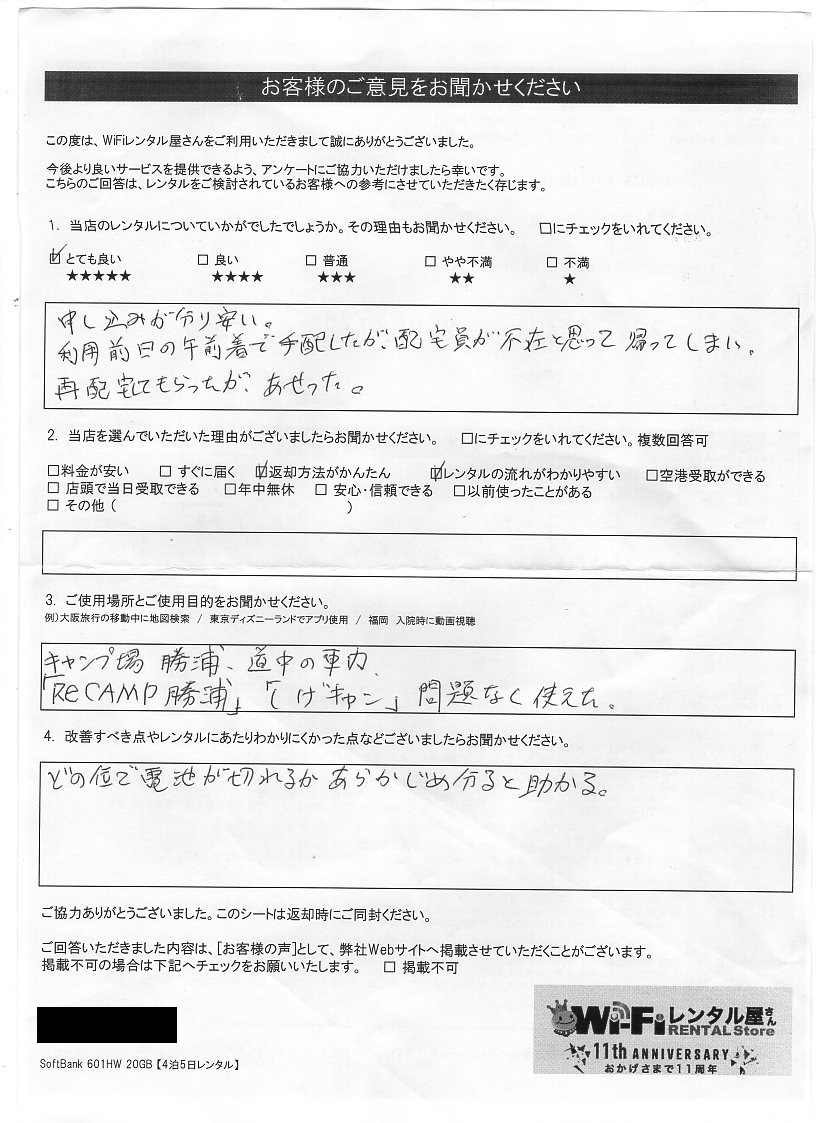 お客様のご意見をお聞かせください
この度は、WiFiレンタル屋さんをご利用いただきまして誠にありがとうございました。
今後より良いサービスを提供できるよう、アンケートにご協力いただけましたら幸いです。
こちらのご回答は、レンタルをご検討されているお客様への参考にさせていただきたく存じます。
1. 当店のレンタルについていかがでしたでしょうか。その理由もお聞かせください。 □にチェックをいれてください。
☑ とても良い □ 良い □ 普通 □ やや不満 □ 不満
★★★★★ ★★★★ ★★★ ★★ ★
申し込みが分り安い。
利用前日の午前着で手配したが、配宅員が不在と思って帰ってしまい、
再配宅してもらったが、あせった。
2. 当店を選んでいただいた理由がございましたらお聞かせください。 □にチェックをいれてください。複数回答可
□料金が安い □ すぐに届く ☑返却方法がかんたん ☑レンタルの流れがわかりやすい □空港受取ができる
□ 店頭で当日受取できる □年中無休 □ 安心・信頼できる □以前使ったことがある
□ その他 ( )
3. ご使用場所とご使用目的をお聞かせください。
例)大阪旅行の移動中に地図検索 / 東京ディズニーランドでアプリ使用 / 福岡 入院時に動画視聴
キャンプ場 勝浦、道中の車内
「ReCAMP勝浦」「しげキャン」問題なく使えた。
4. 改善すべき点やレンタルにあたりわかりにくかった点などございましたらお聞かせください。
どの位で電池が切れるか あらかじめ分ると助かる。
ご協力ありがとうございました。このシートは返却時にご同封ください。
ご回答いただきました内容は、[お客様の声]として、弊社Webサイトへ掲載させていただくことがございます。
掲載不可の場合は下記へチェックをお願いいたします。 □ 掲載不可
Wi-Fiレンタル屋さん
RENTAL Store
11th ANNIVERSARY
おかげさまで11周年
SoftBank 601HW 20GB【4泊5日レンタル】